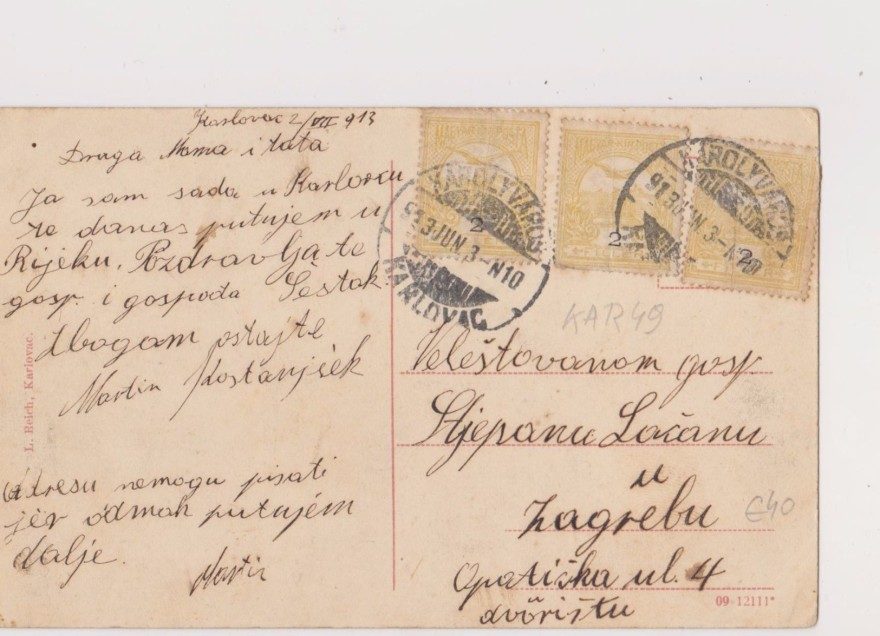 Karlovac 2/VII 913
Draga Mama i tata
Ja sam sada u Karlovcu
te danas putujem u
Rijeku. Pozdravljate
gosp. i gospođa Šestak
zbogam ostajte
Martin Kostanjšek
Adresu nemogu pisati
jer odmah putujem
dalje.
Martin
L. Reich, Karlovac.
MAGYAR KIR. POSTA
2
2
2
KAROLYVAROS
913 JUN. 3-N10
KARLOVAC
KAROLYVAROS
913 JUN. 3-N10
KAR49
Veleštovanom gosp
Stjepanu Lačanu
u
Zagrebu
€40
Opatička ul. 4
dvorištu
09 12111*